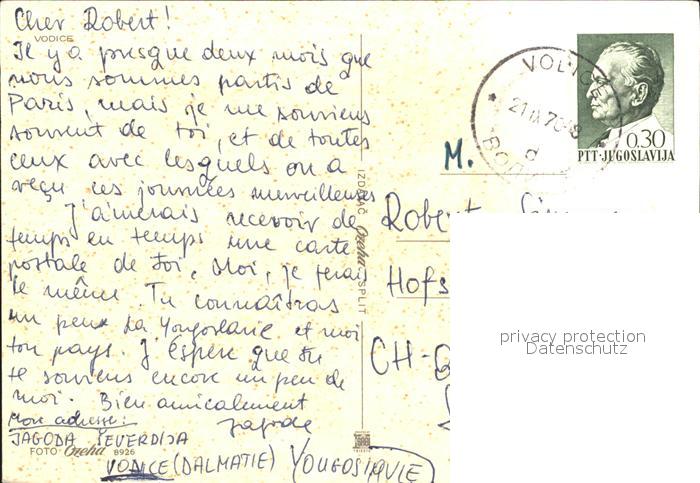 Cher Robert!
VODICE
Il y a presque deux mois que
nous sommes partis de
Paris, mais je me souviens
souvent de toi, et de toutes
ceux avec lesquels on a
reçu ces journées merveilleuses
J'aimerais recevoir de
temps en temps une carte
postale de toi, Moi, je ferais
le même. Tu connaîtras
un peux la Yougoslavie et moi
ton pays. J'éspère que tu
te souviens encore un peu de
moi. Bien amicalement
Jagode
Mon adresse:
JAGODA ŠEVERDIJA
FOTO Creha 8926
VODICE (DALMATIE) YOUGOSLAVIE
IZDAVAČ Creha SPLIT
VODICE
21 IX 70-8
d
0,30
PTT-JUGOSLAVIJA
M.
Robert
Hofs
CH-
privacy protection
Datenschutz